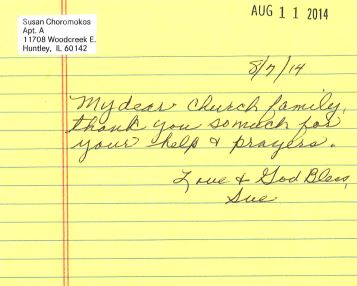 Susan Choromokos
Apt. A
11708 Woodcreek E.
Huntley, IL 60142
AUG 11 2014
8/7/14
My dear church family,
thank you so much for
your help & prayers.
Love & God Bless,
Sue